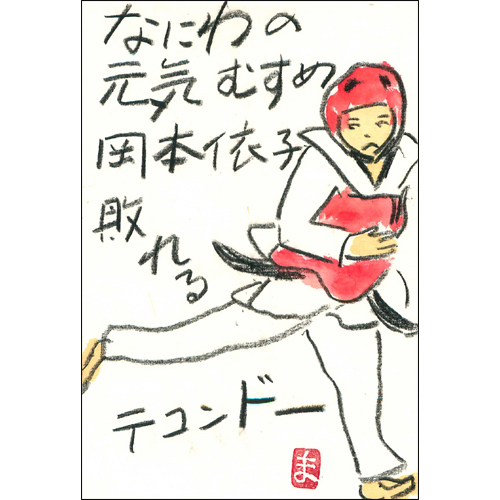 なにわの
元気むすめ
岡本依子
敗れる
テコンドー
ま